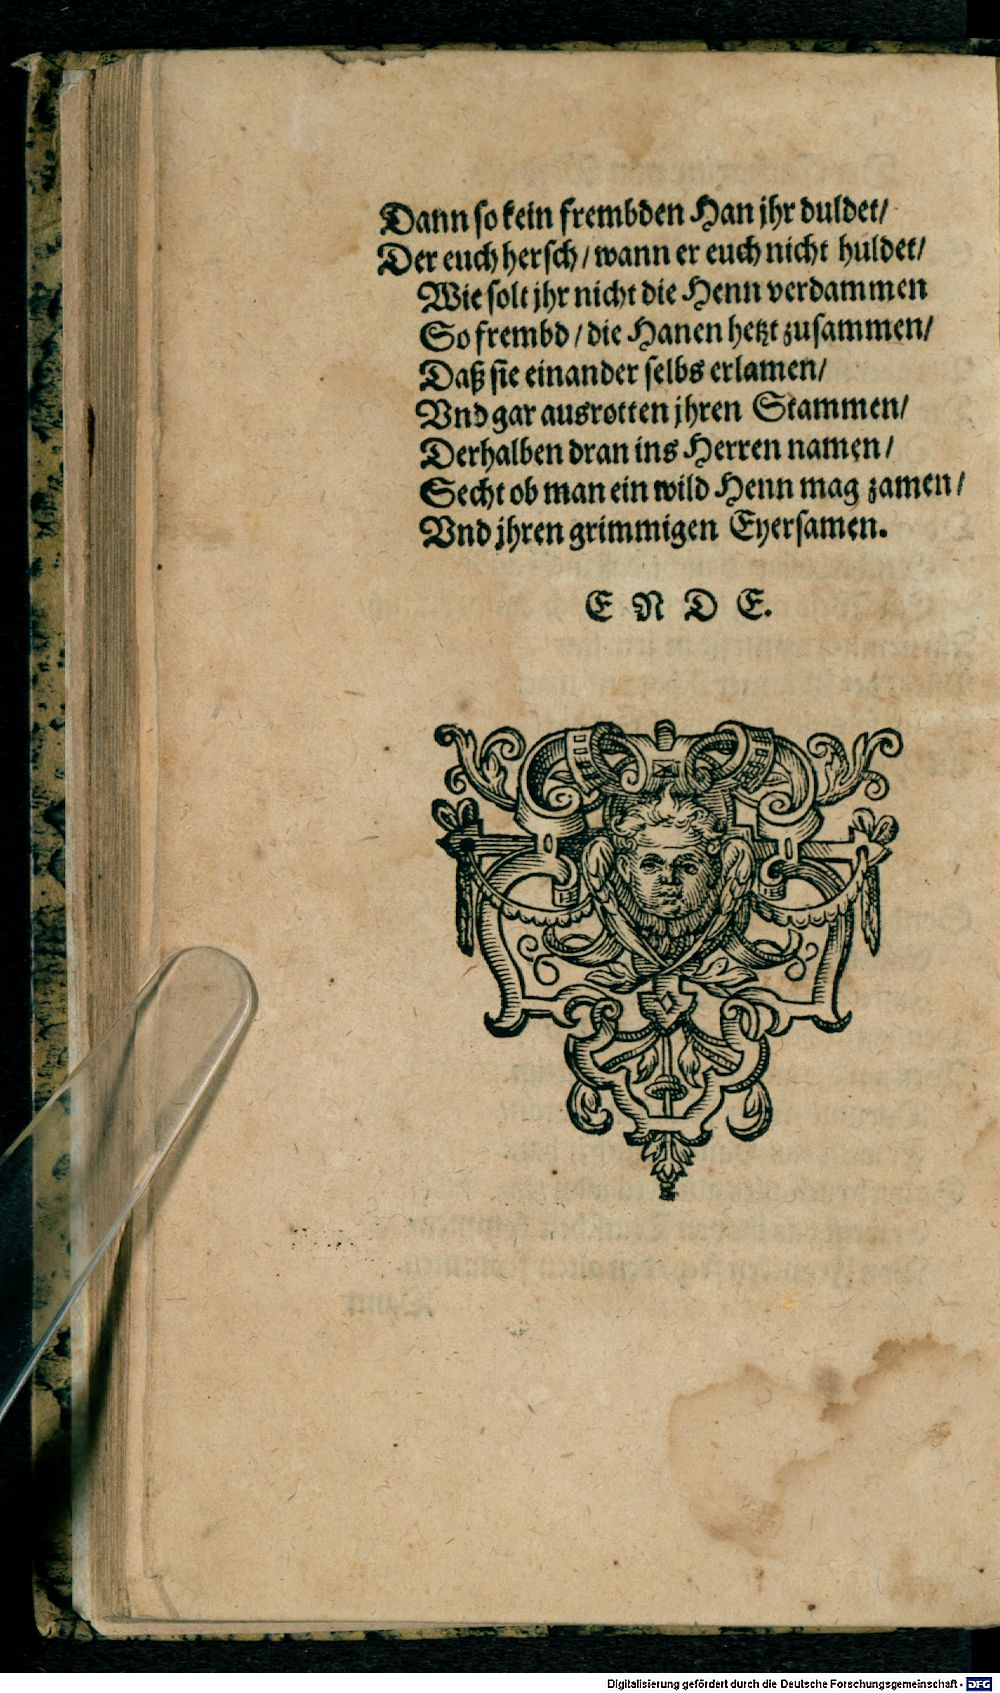 Dann so kein frembden Han jhr duldet/
Der euch hersch/ wann er euch nicht huldet/
Wie solt jhr nicht die Henn verdammen
So frembd/ die Hanen hetzt zusammen/
Daß sie einander selbs erlamen/
Vnd gar ausrotten jhren Stammen/
Derhalben dran ins Herren namen/
Secht ob man ein wild Henn mag zamen/
Vnd jhren grimmigen Eyersamen.
E N D E.
Digitalisierung gefördert durch die Deutsche Forschungsgemeinschaft - DFG